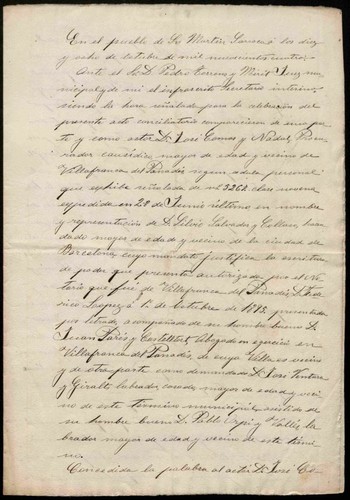 En el pueblo de Sn Martin Sarroca á los diez
y ocho de octubre de mil novecientos
Ante el Sr. D. Pedro Torrens y Miret Juez mu-
nicipal y de mi el infrascrito Secretario interino,
siendo la hora señalada para la celebración del
presente acto conciliatorio comparecieron de una par-
te y como actor D. José Comas y Nadal, Procu-
rador causídico mayor de edad y vecino de
Villafranca del Panadés según cédula personal
que exhibe señalada de nº 2262 clase novena
expedida en 28 de Junio último en nombre
y representación de D. Silvio Salvador y hacen-
dado mayor de edad y vecino de la ciudad de
Barcelona cuyo mandato justifica la escritura
de poder que presenta autorizada por el no-
tario que fué de Villafranca del Panadés D. Fede-
rico á 1º de Octubre de 1892 presentada
por letrado, acompañado de su hombre bueno D.
Juan Parés y Castelltort Abogado en ejercicio en
Villafranca del Panadés, de cuya Villa es vecino
y de otra parte como demandado D. José Ventura
y Giralt labrador, casado, mayor de edad y veci-
no de este termino municipal, asistido de
su hombre bueno D. Pablo Orpí y Vallés, la-
brador mayor de edad y vecino de este térmi-
no.
Concedida la palabra al actor D. José Co-